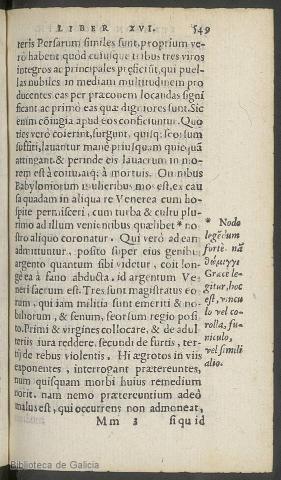 LIBER XVI. 549
teris Persarum similes sunt, proprium ve-
ro habent quod cuiusque tribus tres viros
integros ac principales præsiciūt, qui puel-
las nubiles in mediam multitudinem pro
ducentes eas per præconem locandas signi
ficant ac primo eas quæ digniores sunt. Sic
enim cōiugia apud eos conficiuntur. Quo
ties verò coierint, surgunt, quisq; seorsum
suffiti, lauantur mane priusquam quicquā
attingant. & perinde eis lauacrum in mo-
rem est à coitu, atq; à mortuis. Omnibus
Babyloniorum mulieribus mos est, ex cau
sa quadam in aliqua re Venerea cum ho-
spite permisceri, cum turba & cultu plu-
rimo ad illum venientibus quælibet * no-
stro aliquo coronatur. Qui verò ad eam
admittuntur, posito super eius genibus
argento quantum sibi videtur, coit lon-
ge a a fano abducta. id argentum Ve-
neri sacrum est. Tres sunt magistratus eo-
rum, qui iam militia sunt emeriti & no-
biliorum, & senum, seorsum regio posi-
to. Primi & virgines collocare, & de adul-
terijs iura reddere. secundi de furtis, ter-
tij de rebus violentis. Hi ægrotos in viis
exponentes, interrogant prætereuntes,
num quisquam morbi huius remedium
norit. nam nemo prætereuntium adeò
malus est, qui occurrens non admoneat,
Mm 3 si quid
* Nodo
legēdum
forte. nā
Græce le-
gitur, hoc
est, vincu
lo vel co-
rolla, fu-
niculo,
vel simili
alio.
Biblioteca de Galicia